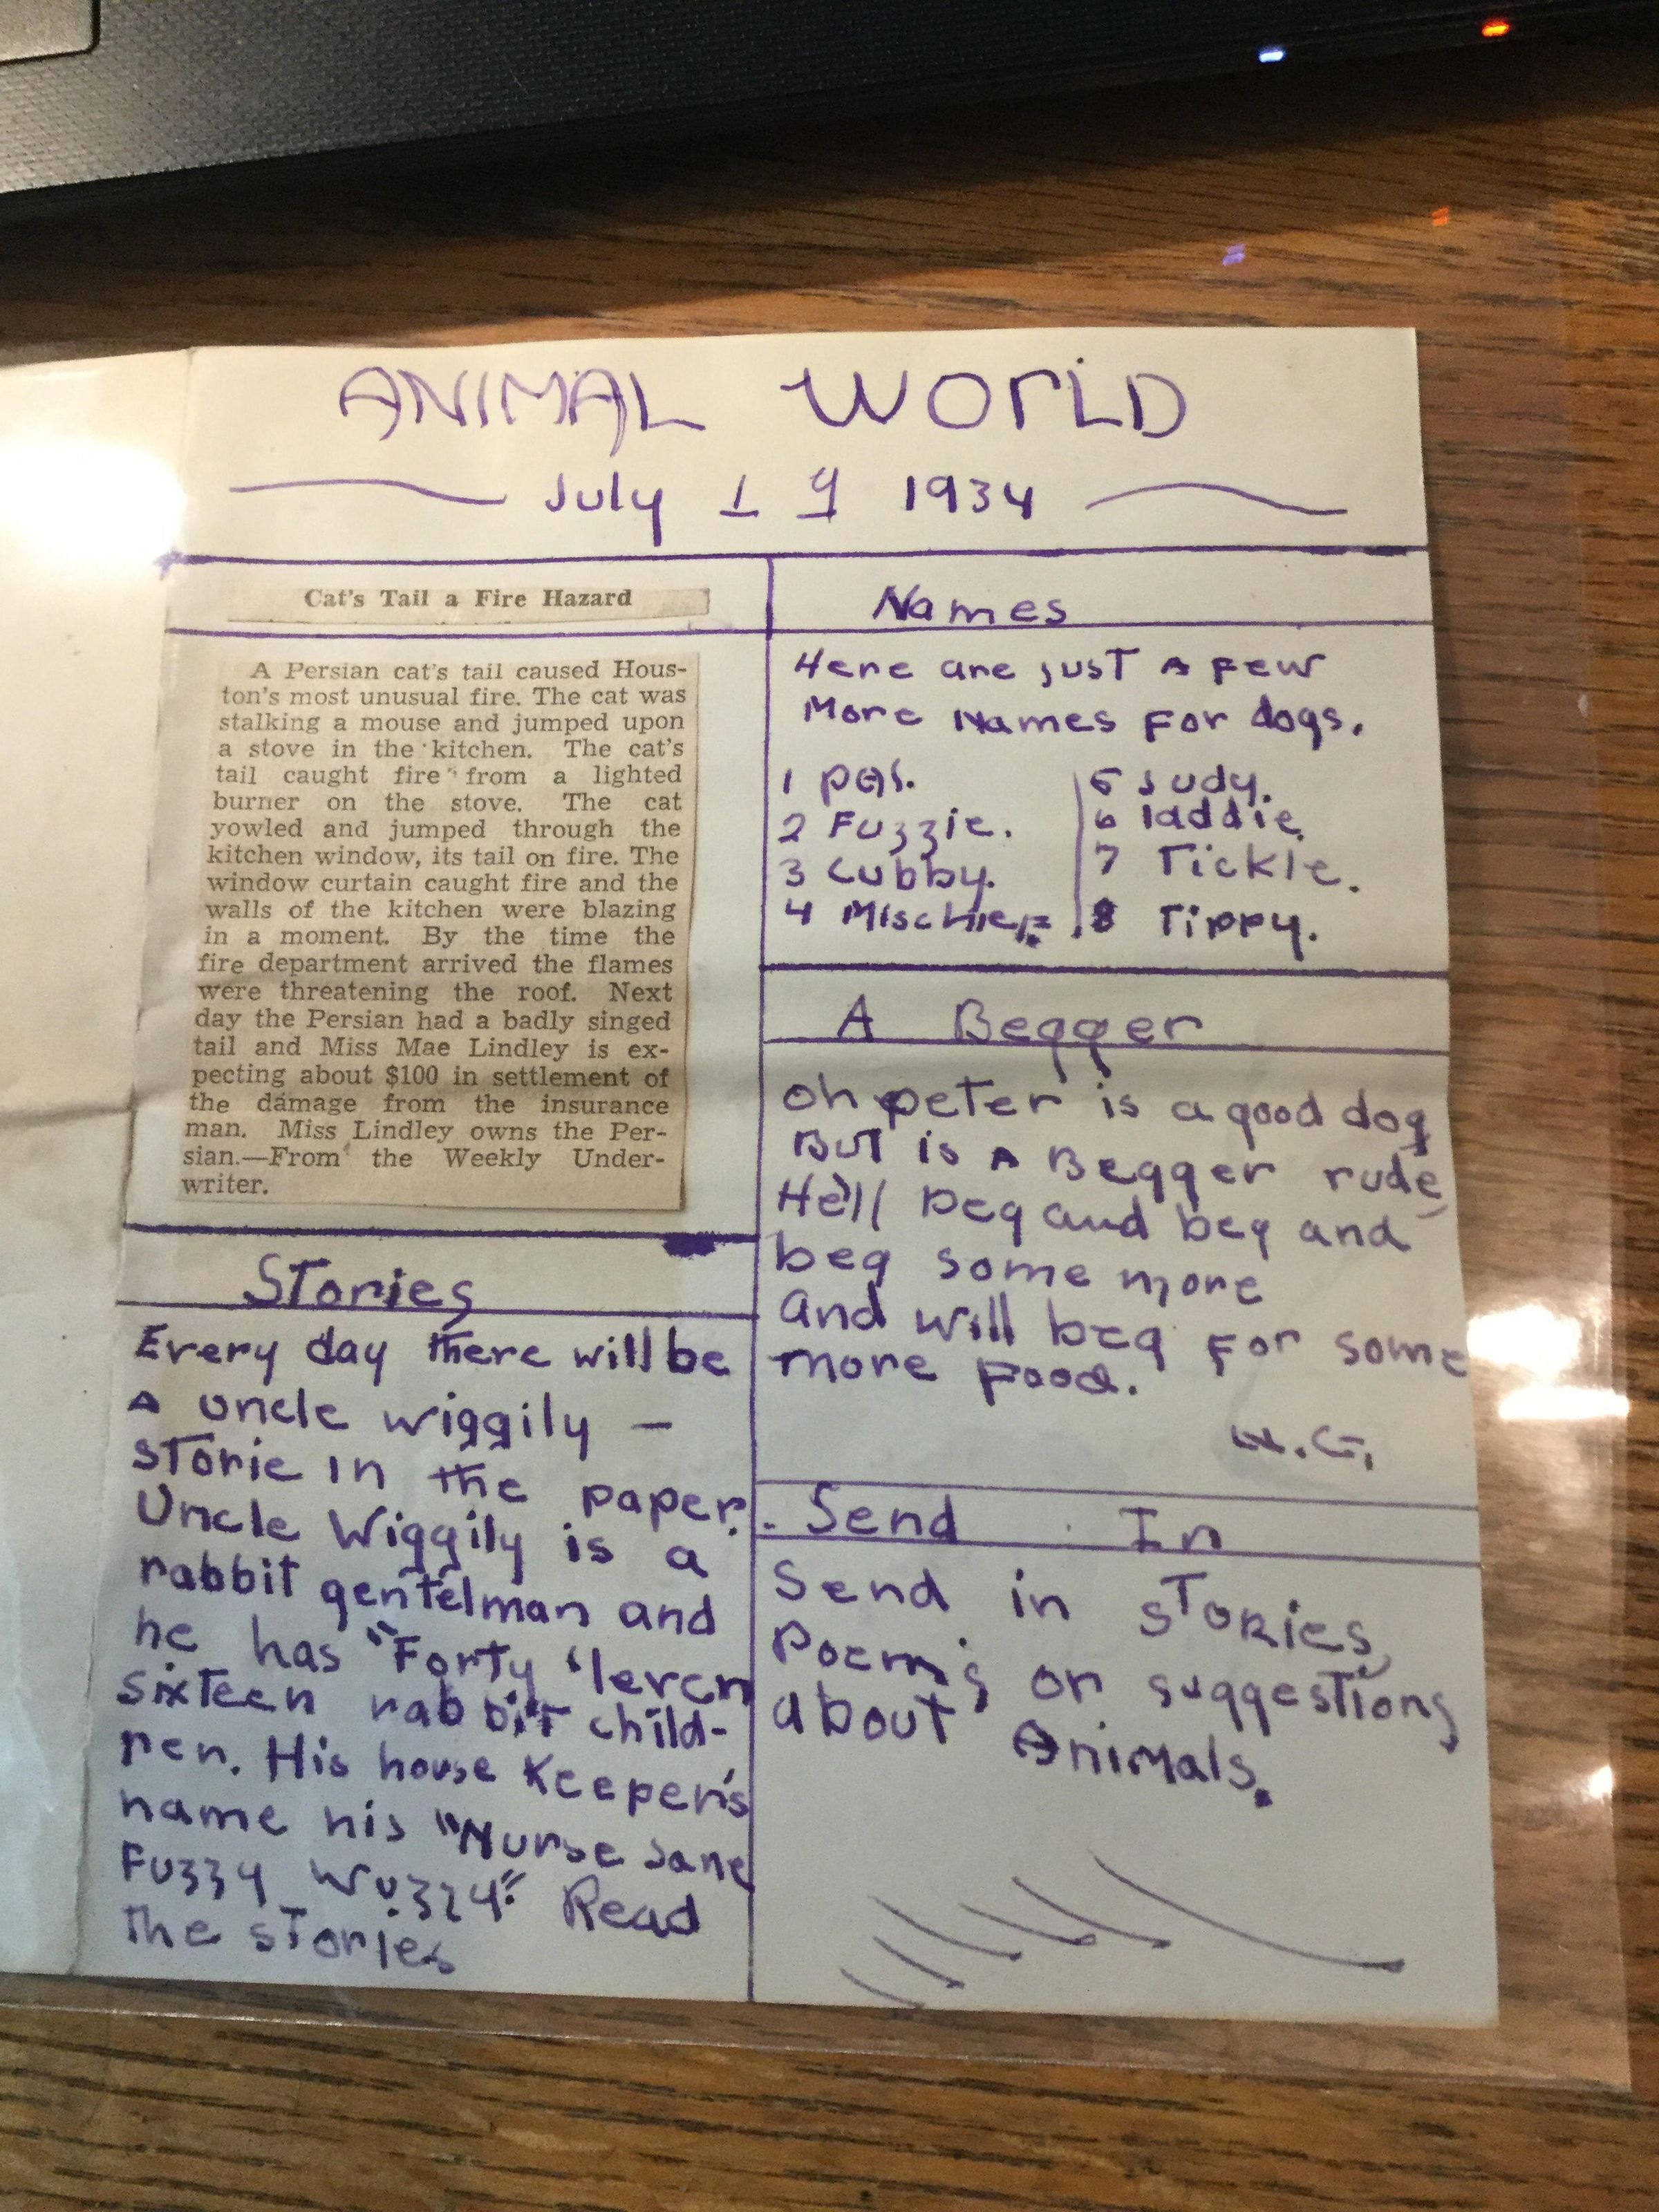 ANIMAL WORLD
July 19 1934
Cat's Tail a Fire Hazard
A Persian cat's tail caused Hous-
ton's most unusual fire. The cat was
stalking a mouse and jumped upon
a stove in the kitchen. The cat's
tail caught fire from a lighted
burner on the stove. The cat
yowled and jumped through the
kitchen window, its tail on fire. The
window curtain caught fire and the
walls of the kitchen were blazing
in a moment. By the time the
fire department arrived the flames
were threatening the roof. Next
day the Persian had a badly singed
tail and Miss Mae Lindley is ex-
pecting about $100 in settlement of
the damage from the insurance
man. Miss Lindley owns the Per-
sian.—From the Weekly Under-
writer.
Stories
Every day there will be
A uncle wiggily –
storie in the paper.
Uncle Wiggily is a
rabbit gentelman and
he has "Forty 'leven
sixteen rabbit child-
ren. His house Keeper's
name his "Nurse Jane
Fuzzy Wuzzy." Read
the stories
Names
Here are just A few
More Names For dogs.
1 Pal.
2 Fuzzie.
3 Cubby.
4 Mischief.
5 Judy.
6 laddie.
7 Tickle.
8 Tippy.
A Begger
oh peter is a good dog
But is A Begger rude
He'll beg and beg and
beg some more
and will beg For some
more food.
G.
Send In
Send in stories,
Poems or suggestions
about Animals.